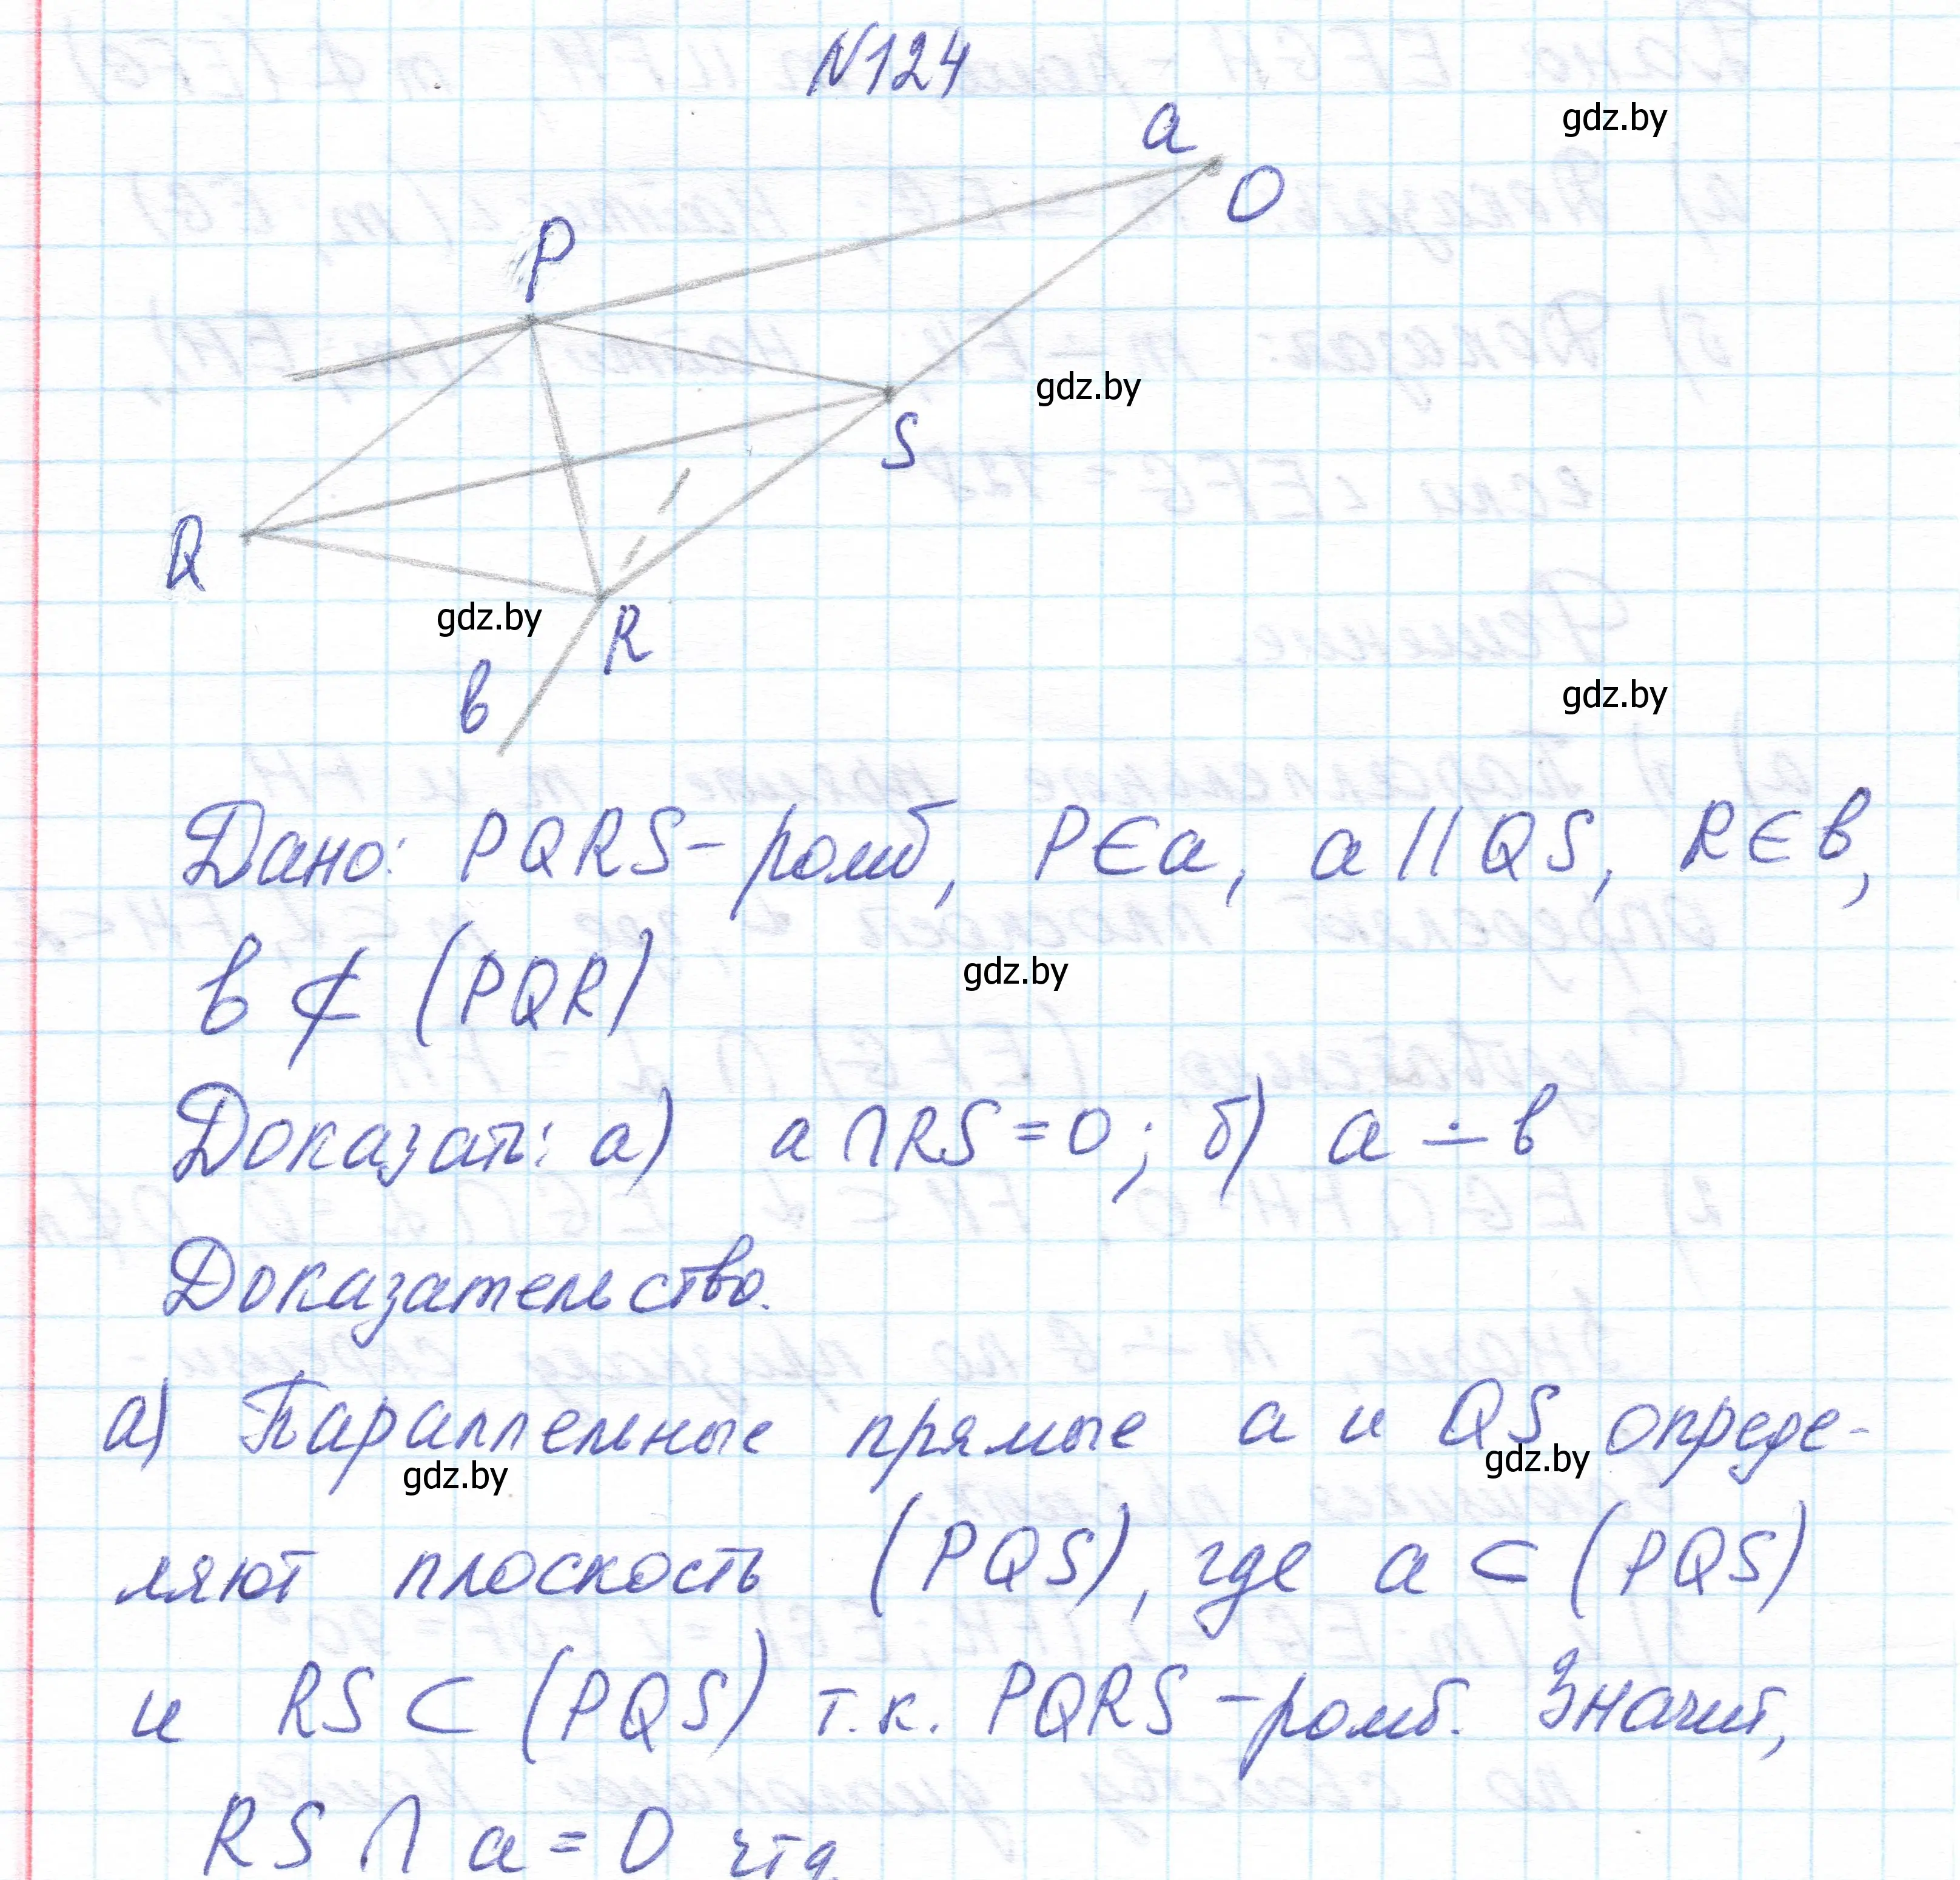 N124
a
O
P
gdz.by
S
gdz.by
Q
gdz.by
R
в
gdz.by
Дано: PQRS - ромб, P∈a, a || QS, R∈в,
в ⊄ (PQR)
gdz.by
Доказать: а) a ∩ RS = O; б) a ∸ в
Доказательство.
а) Параллельные прямые a и QS опреде-
gdz.by
gdz.by
ляют плоскость (PQS), где a ⊂ (PQS)
и RS ⊂ (PQS) т.к. PQRS - ромб. Значит,
RS ∩ a = O чтд